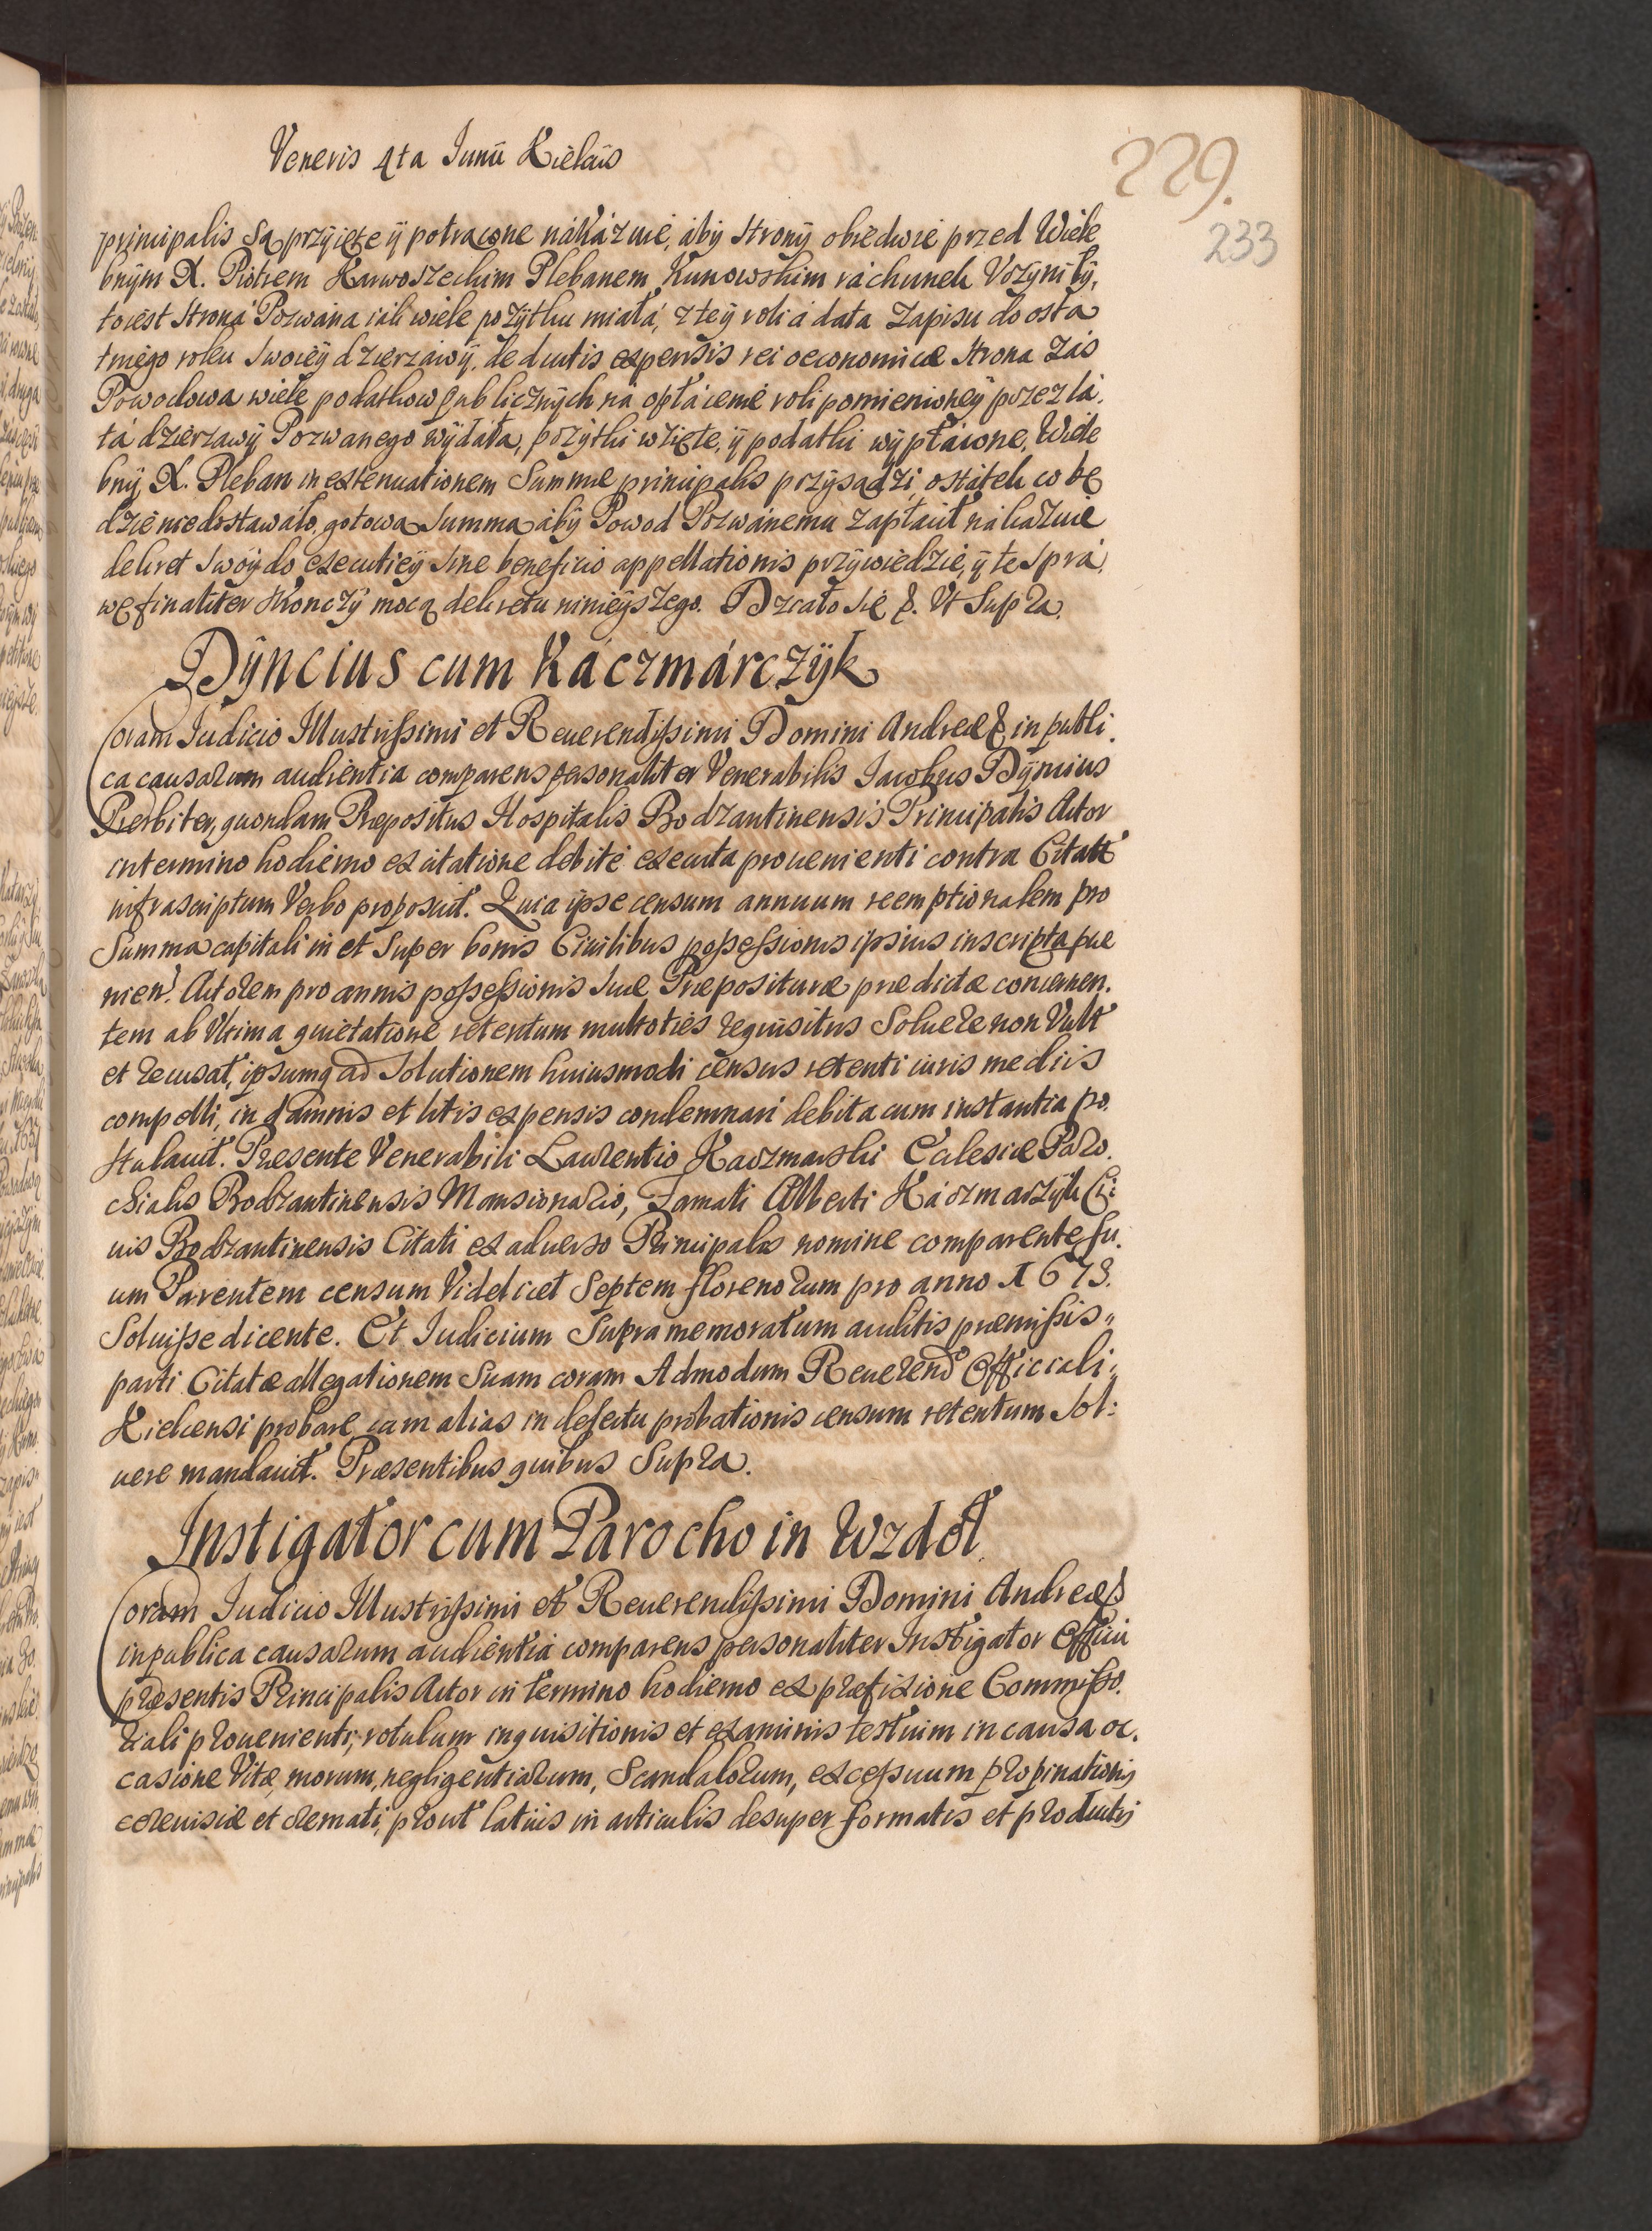 Veneris 4ta Junii Kielciis
229.
233
principalis są przyięte ÿ potrącone nákázuie, áby strony obiedwie przed Wiele
bnÿm X. Piotrem Karwoszeckim Plebanem Kunowskim ráchunek Vczÿniłÿ,
toiest Stroná Pozwána iák wiele pożÿtku miáłá, z teÿ roli á data Zapisu do osta
tniego roku Swoieÿ dzierżawÿ, deductis expensis rei oeconomicæ Strona Záś
Powodowa wiele podatkow publicznÿch ná opłácenie roli pomienioneÿ przez lá,
tá dzierżawÿ Pozwanego wÿdáła, pożÿtki wzięte, ÿ podatki wÿpłácone, Wiele
bnÿ X. Pleban in extenuationem Summæ principalis przÿsądzi, ostátek co bę
dzie niedostawáło, gotową Summą áby Powod Pozwánemu zapłacił nákazuie
dekret Swoÿ do executieÿ sine beneficio appellationis przÿwiedzie, ÿ tę Sprá,
wę finaliter skonczÿ mocą dekretu ninieÿszego. Działo się &. Vt Supra.
Dÿncius cum Káczmárczÿk
Coram Judicio Illustrissimi et Reuerendissimi Domini Andreæ & in publi,
ca causarum audientia comparens personaliter Venerabilis Jacobus Dÿncius
Præsbiter, quondam Præpositus Hospitalis Bodzantinensis Principalis Actor
in termino hodierno ex citatione debite executa prouenienti contra Citatt
infrascriptum Verbo proposuit. Quia ipse censum annuum reemptionalem pro
Summa capitali in et super bonis Ciuilibus possessionis ipsius inscripta prue
nien. Actorem pro annis possessionis suæ Præpositurae prædictæ concernen.
tem ab Vltima quietatione retentum multoties requisitus Soluere non Vult
et recusat, ipsumq ad Solutionem huiusmodi census retenti iuris mediis
compelli, in damnis et litis expensis condemnari debita cum instantia po,
stulauit. Præsente Venerabili Laurentio Kaczmarski Eclesiæ Paro,
chialis Bodzantinensis Mansionario, Famati Alberti Káczmarzÿk Ci:
uis Bodzantinensis Citati ex aduerso Principalis nomine comparente su,
um Parentem censum Videlicet Septem florenorum pro anno 1673.
Soluisse dicente. Et Judicium Supra memoratum auditis præmissis
parti Citatæ allegationem Suam coram Admodum Reuerend Officiali
Kielcensi probare, eam alias in defectu probationis censum retentum Sol:
uere mandauit. Præsentibus quibus Supra.
Instigator cum Parocho in Wzdół
Coram Judicio Illustrissimi et Reuerendissimi Domini Andreæ &
in publica causarum audientia comparens personaliter Instigator Officii
præsentis Principalis Actor in termino hodierno ex præfixione Commisso,
riali prouenienti, rotulum inquisitionis et examinis testium in causa oc,
casione Vitæ, morum, negligentiarum, Scandalorum, excessuum propinationis
cereuisiæ et cremati, prout latius in articulis desuper formatis et productis